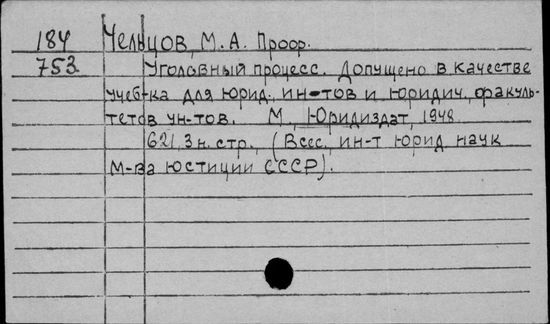 184 Чельцов, М. А. Проф.
753 Уголовный процесс. Допущено в качестве
учеб-ка для юрид. ин-тов и юридич. факуль-
тетов ун-тов. М., Юридиздат, 1948.
621, 3 н. стр., (Всес. ин-т юрид. наук
М-ва юстиции СССР).